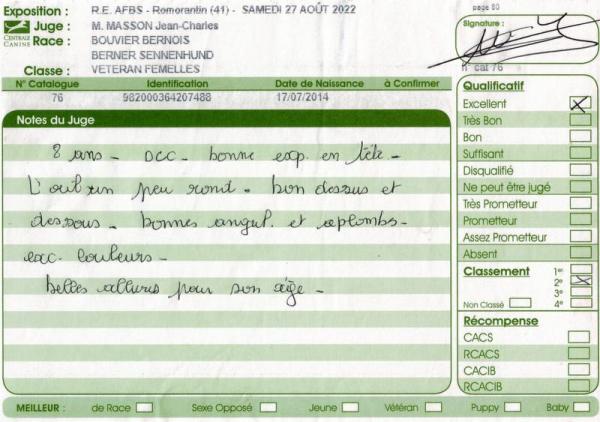 Exposition : R.E. AFBS - Romorantin (41) - SAMEDI 27 AOÛT 2022
page 80
CENTRALE CANINE
Juge : M. MASSON Jean-Charles
Signature :
Race : BOUVIER BERNOIS
BERNER SENNENHUND
Classe : VETERAN FEMELLES
n° cat 76
N° Catalogue Identification Date de Naissance à Confirmer
76 982000364207488 17/07/2014
Notes du Juge
8 ans - occ - bonne exp. en tête -
L'œil un peu rond - bon dessus et
dessous - bonnes angul. et aplombs -
exc. couleurs -
belles allures pour son âge -
Qualificatif
Excellent X
Très Bon
Bon
Suffisant
Disqualifié
Ne peut être jugé
Très Prometteur
Prometteur
Assez Prometteur
Absent
Classement 1er
2e X
3e
Non Classé 4e
Récompense
CACS
RCACS
CACIB
RCACIB
MEILLEUR : de Race Sexe Opposé Jeune Vétéran Puppy Baby